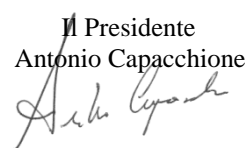 Il Presidente
Antonio Capacchione